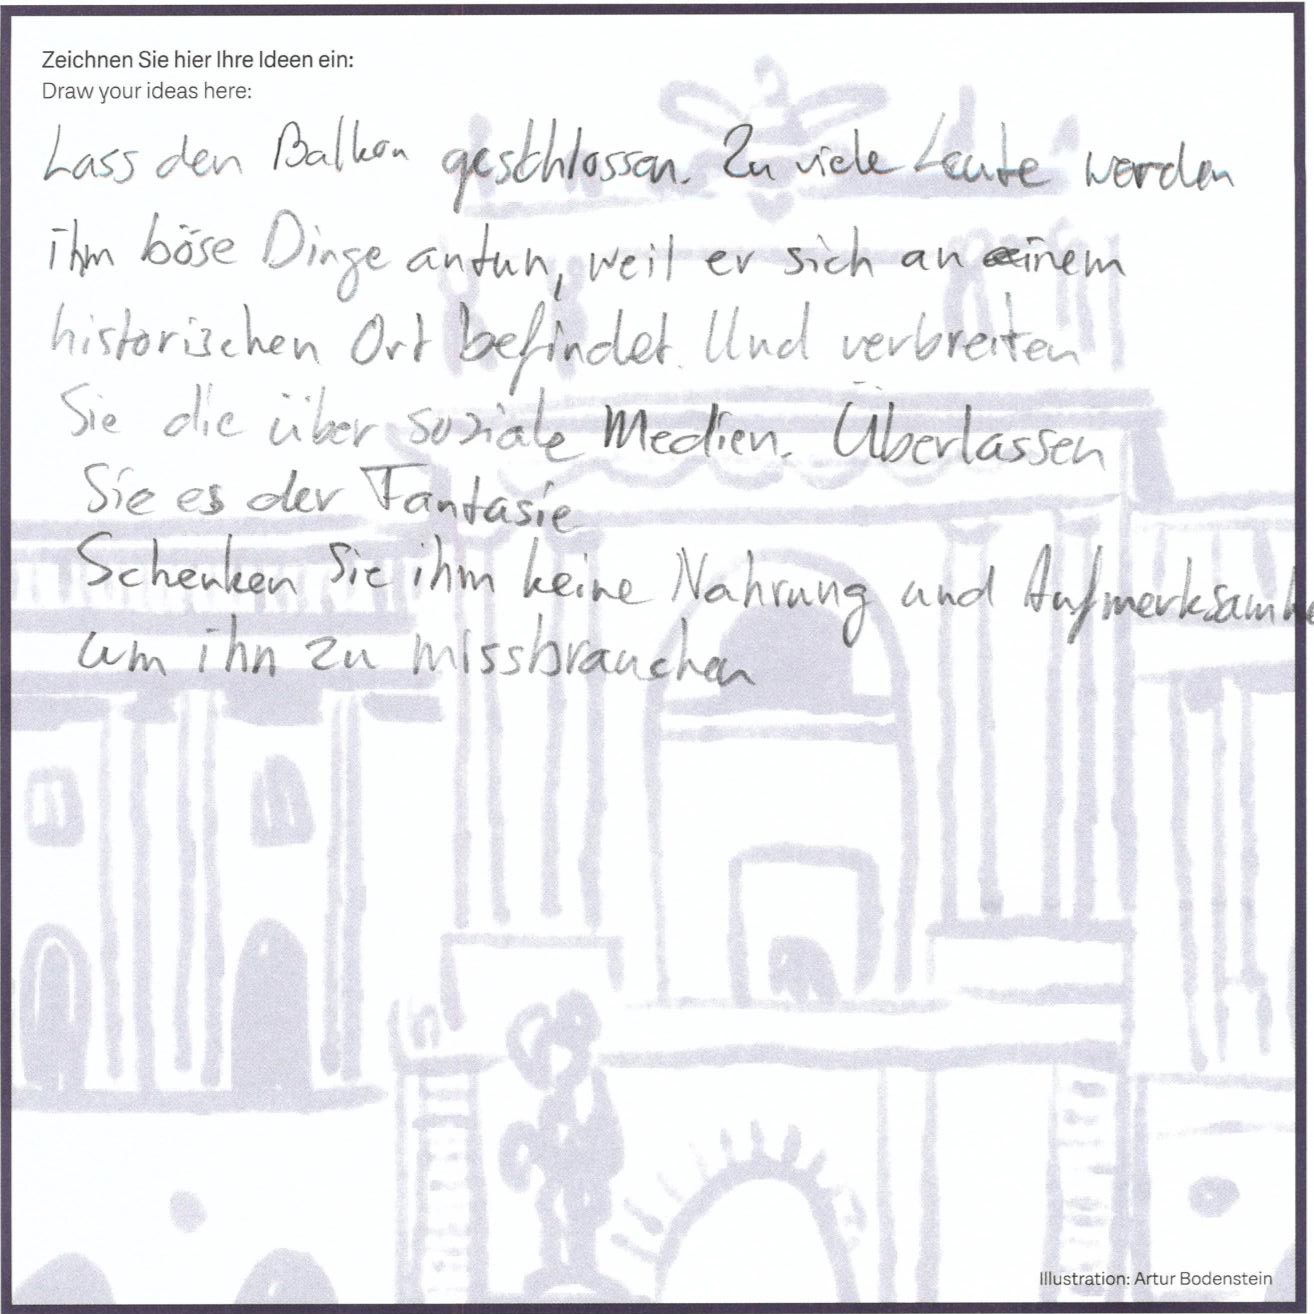 Zeichnen Sie hier Ihre Ideen ein:
Draw your ideas here:
Lass den Balkon geschlossen. Zu viele Leute werden
ihm böse Dinge antun, weil er sich an einem
historischen Ort befindet. Und verbreiten
Sie die über soziale Medien. Überlassen
Sie es der Fantasie
Schenken Sie ihm keine Nahrung und Aufmerksamke
um ihn zu missbrauchen
Illustration: Artur Bodenstein